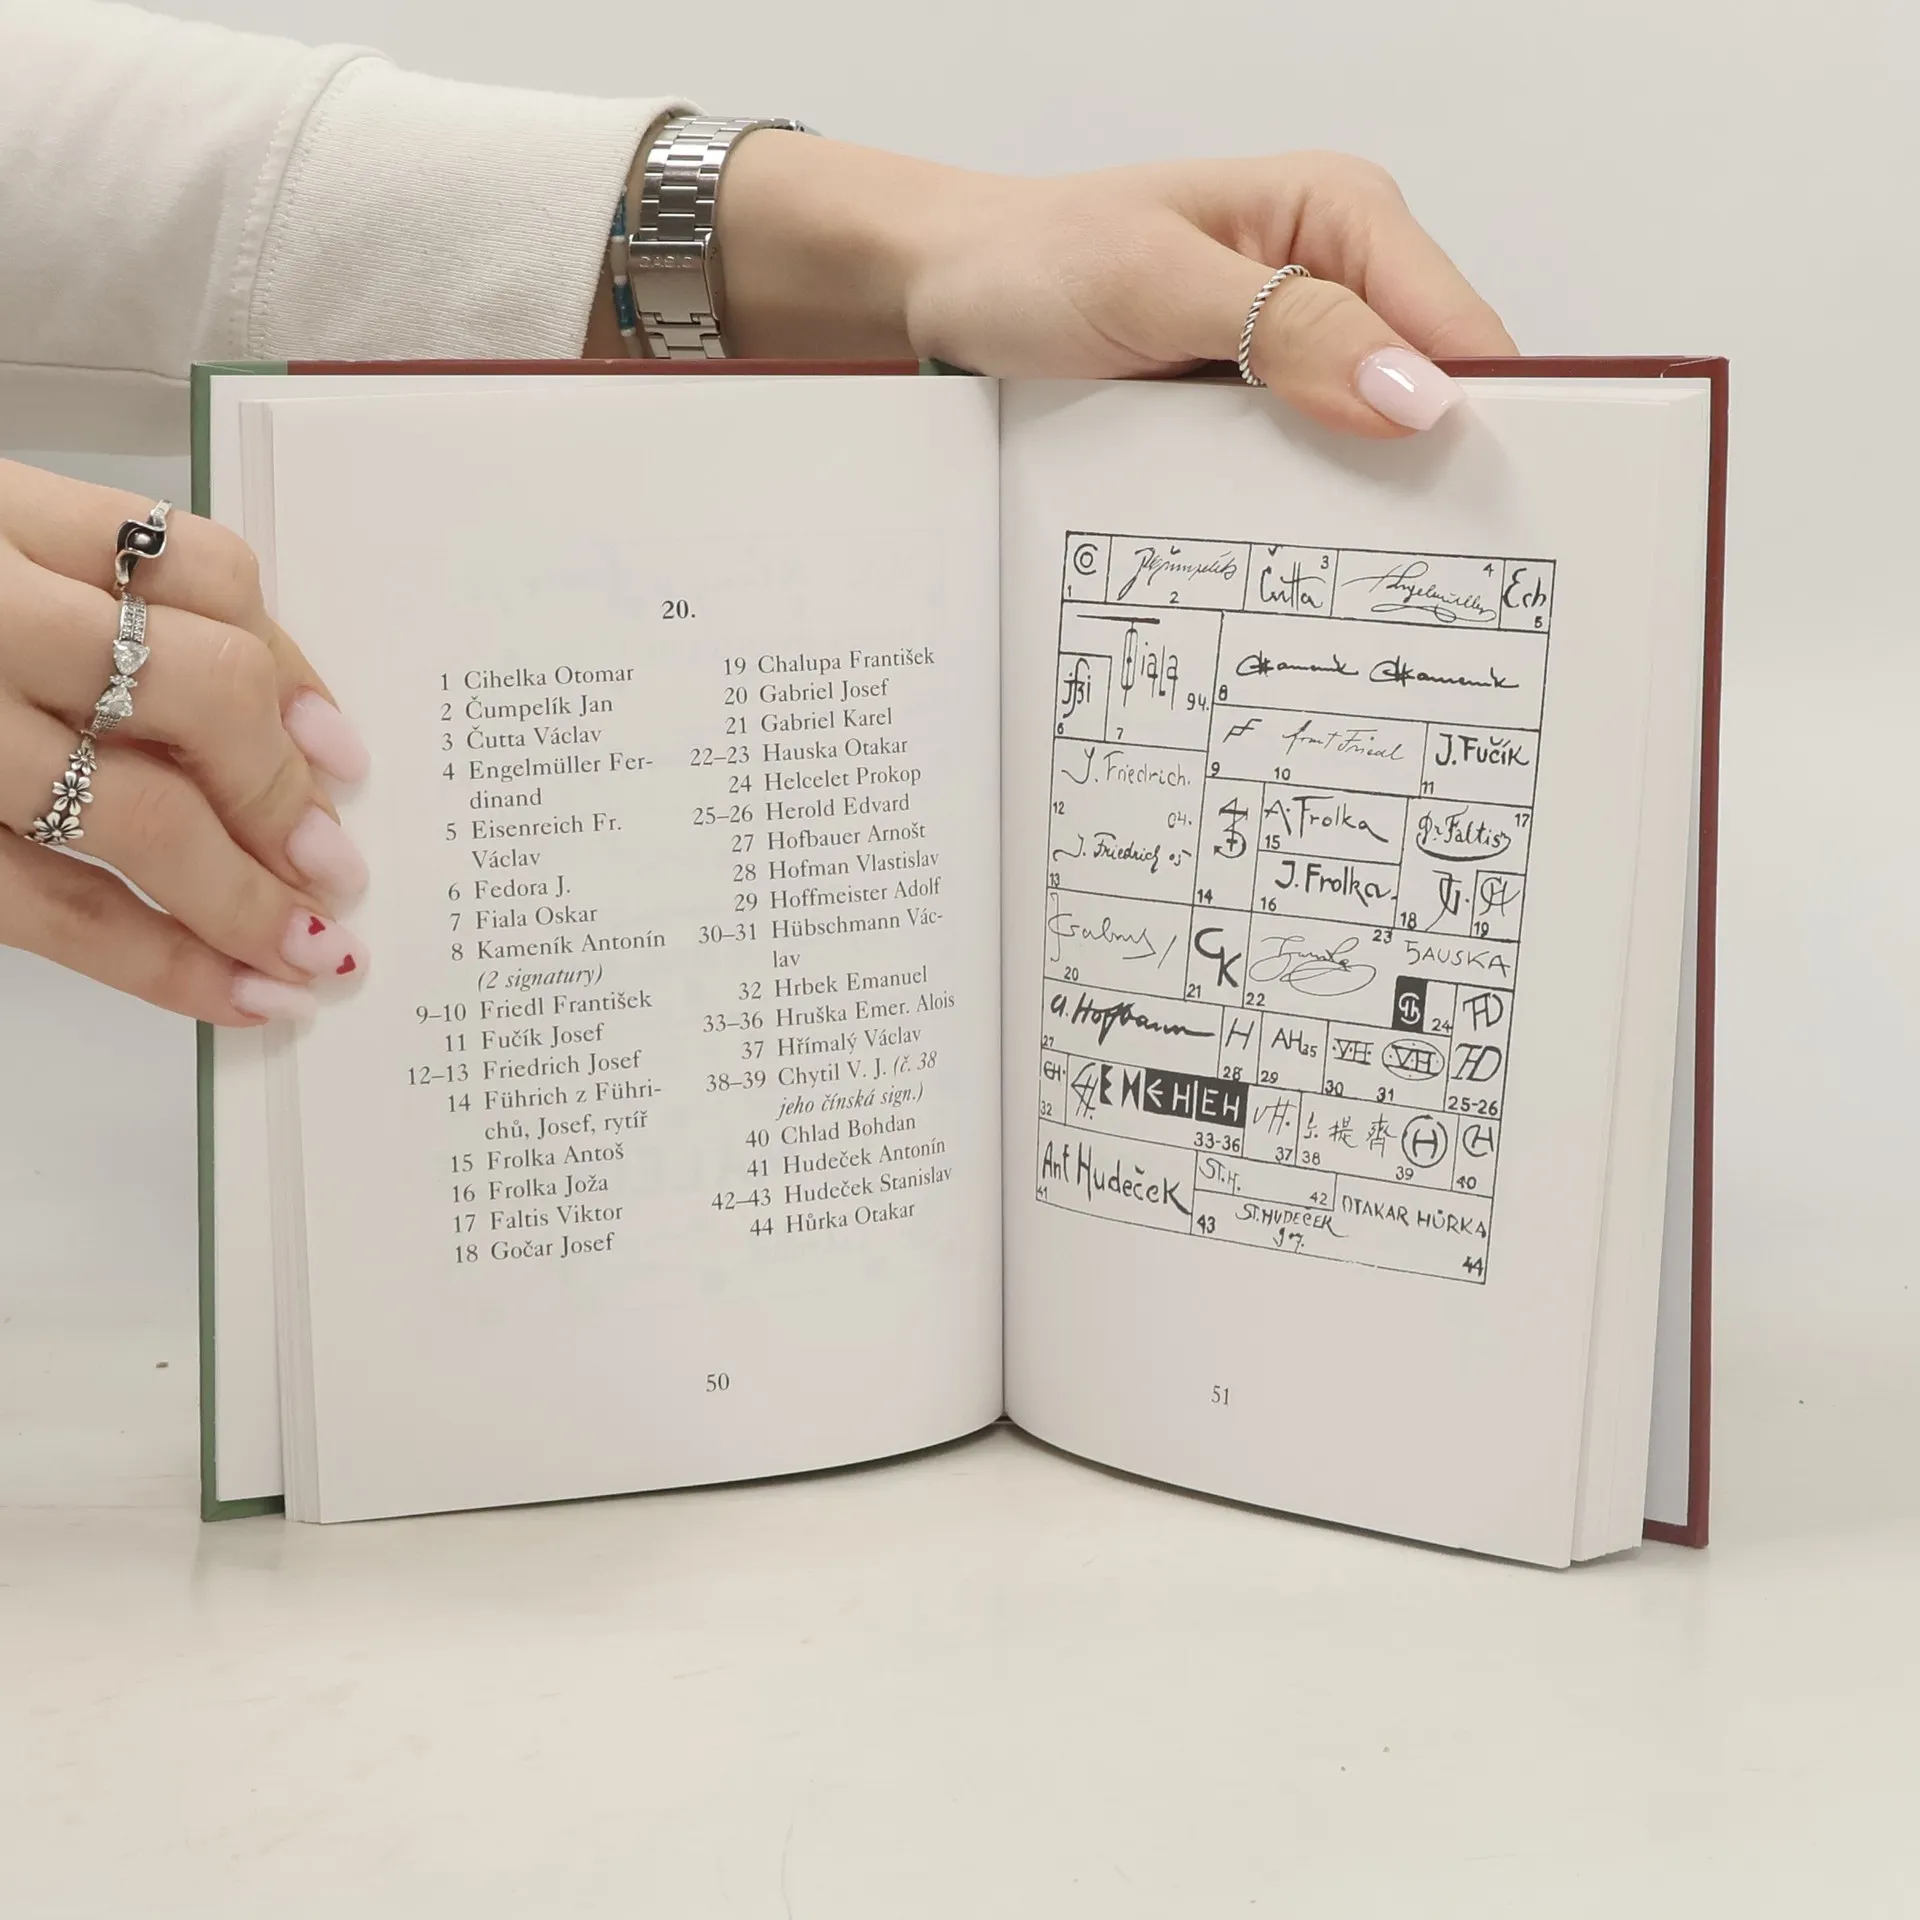 CASIO
20.
1 Cihelka Otomar
2 Čumpelík Jan
3 Čutta Václav
4 Engelmüller Fer-
dinand
5 Eisenreich Fr.
Václav
6 Fedora J.
7 Fiala Oskar
8 Kameník Antonín
(2 signatury)
9–10 Friedl František
11 Fučík Josef
12–13 Friedrich Josef
14 Führich z Führi-
chů, Josef, rytíř
15 Frolka Antoš
16 Frolka Joža
17 Faltis Viktor
18 Gočar Josef
19 Chalupa František
20 Gabriel Josef
21 Gabriel Karel
22–23 Hauska Otakar
24 Helcelet Prokop
25–26 Herold Edvard
27 Hofbauer Arnošt
28 Hofman Vlastislav
29 Hoffmeister Adolf
30–31 Hübschmann Vác-
lav
32 Hrbek Emanuel
33–36 Hruška Emer. Alois
37 Hřímalý Václav
38–39 Chytil V. J. (č. 38
jeho čínská sign.)
40 Chlad Bohdan
41 Hudeček Antonín
42–43 Hudeček Stanislav
44 Hůrka Otakar
50
1
2
Čutta 3
Engelmüller 4
Ech 5
6
Fiala 94. 7
8 Kameník Kameník
9
10
J. Fučík 11
J. Friedrich. 04. 12
J. Friedrich 05 13
14
A. Frolka 15
J. Frolka. 16
Dr. Faltis 17
18
19
20
GK 21
22
23 HAUSKA
24
HD
HD 25-26
A. Hofbauer 27
H 28
AH35 29
VH 30
VH 31
EH. 32
EH EH EH 33-36
VH. 37
38
提 齊
H 39
CH 40
Ant Hudeček 41
ST.H. 42
ST. HUDEČEK 907. 43
OTAKAR HŮRKA 44
51